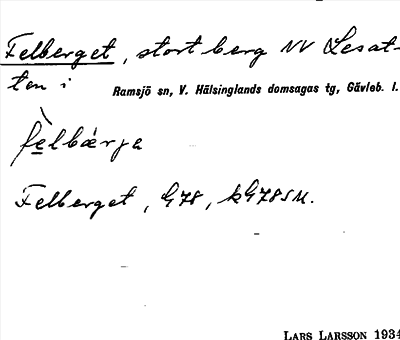 Felberget, stort berg NV Lesat-
ten i Ramsjö sn, V. Hälsinglands domsagas tg, Gävleb. l.
fèlbǽrja
Felberget, G78, kG78SM.
LARS LARSSON 1934